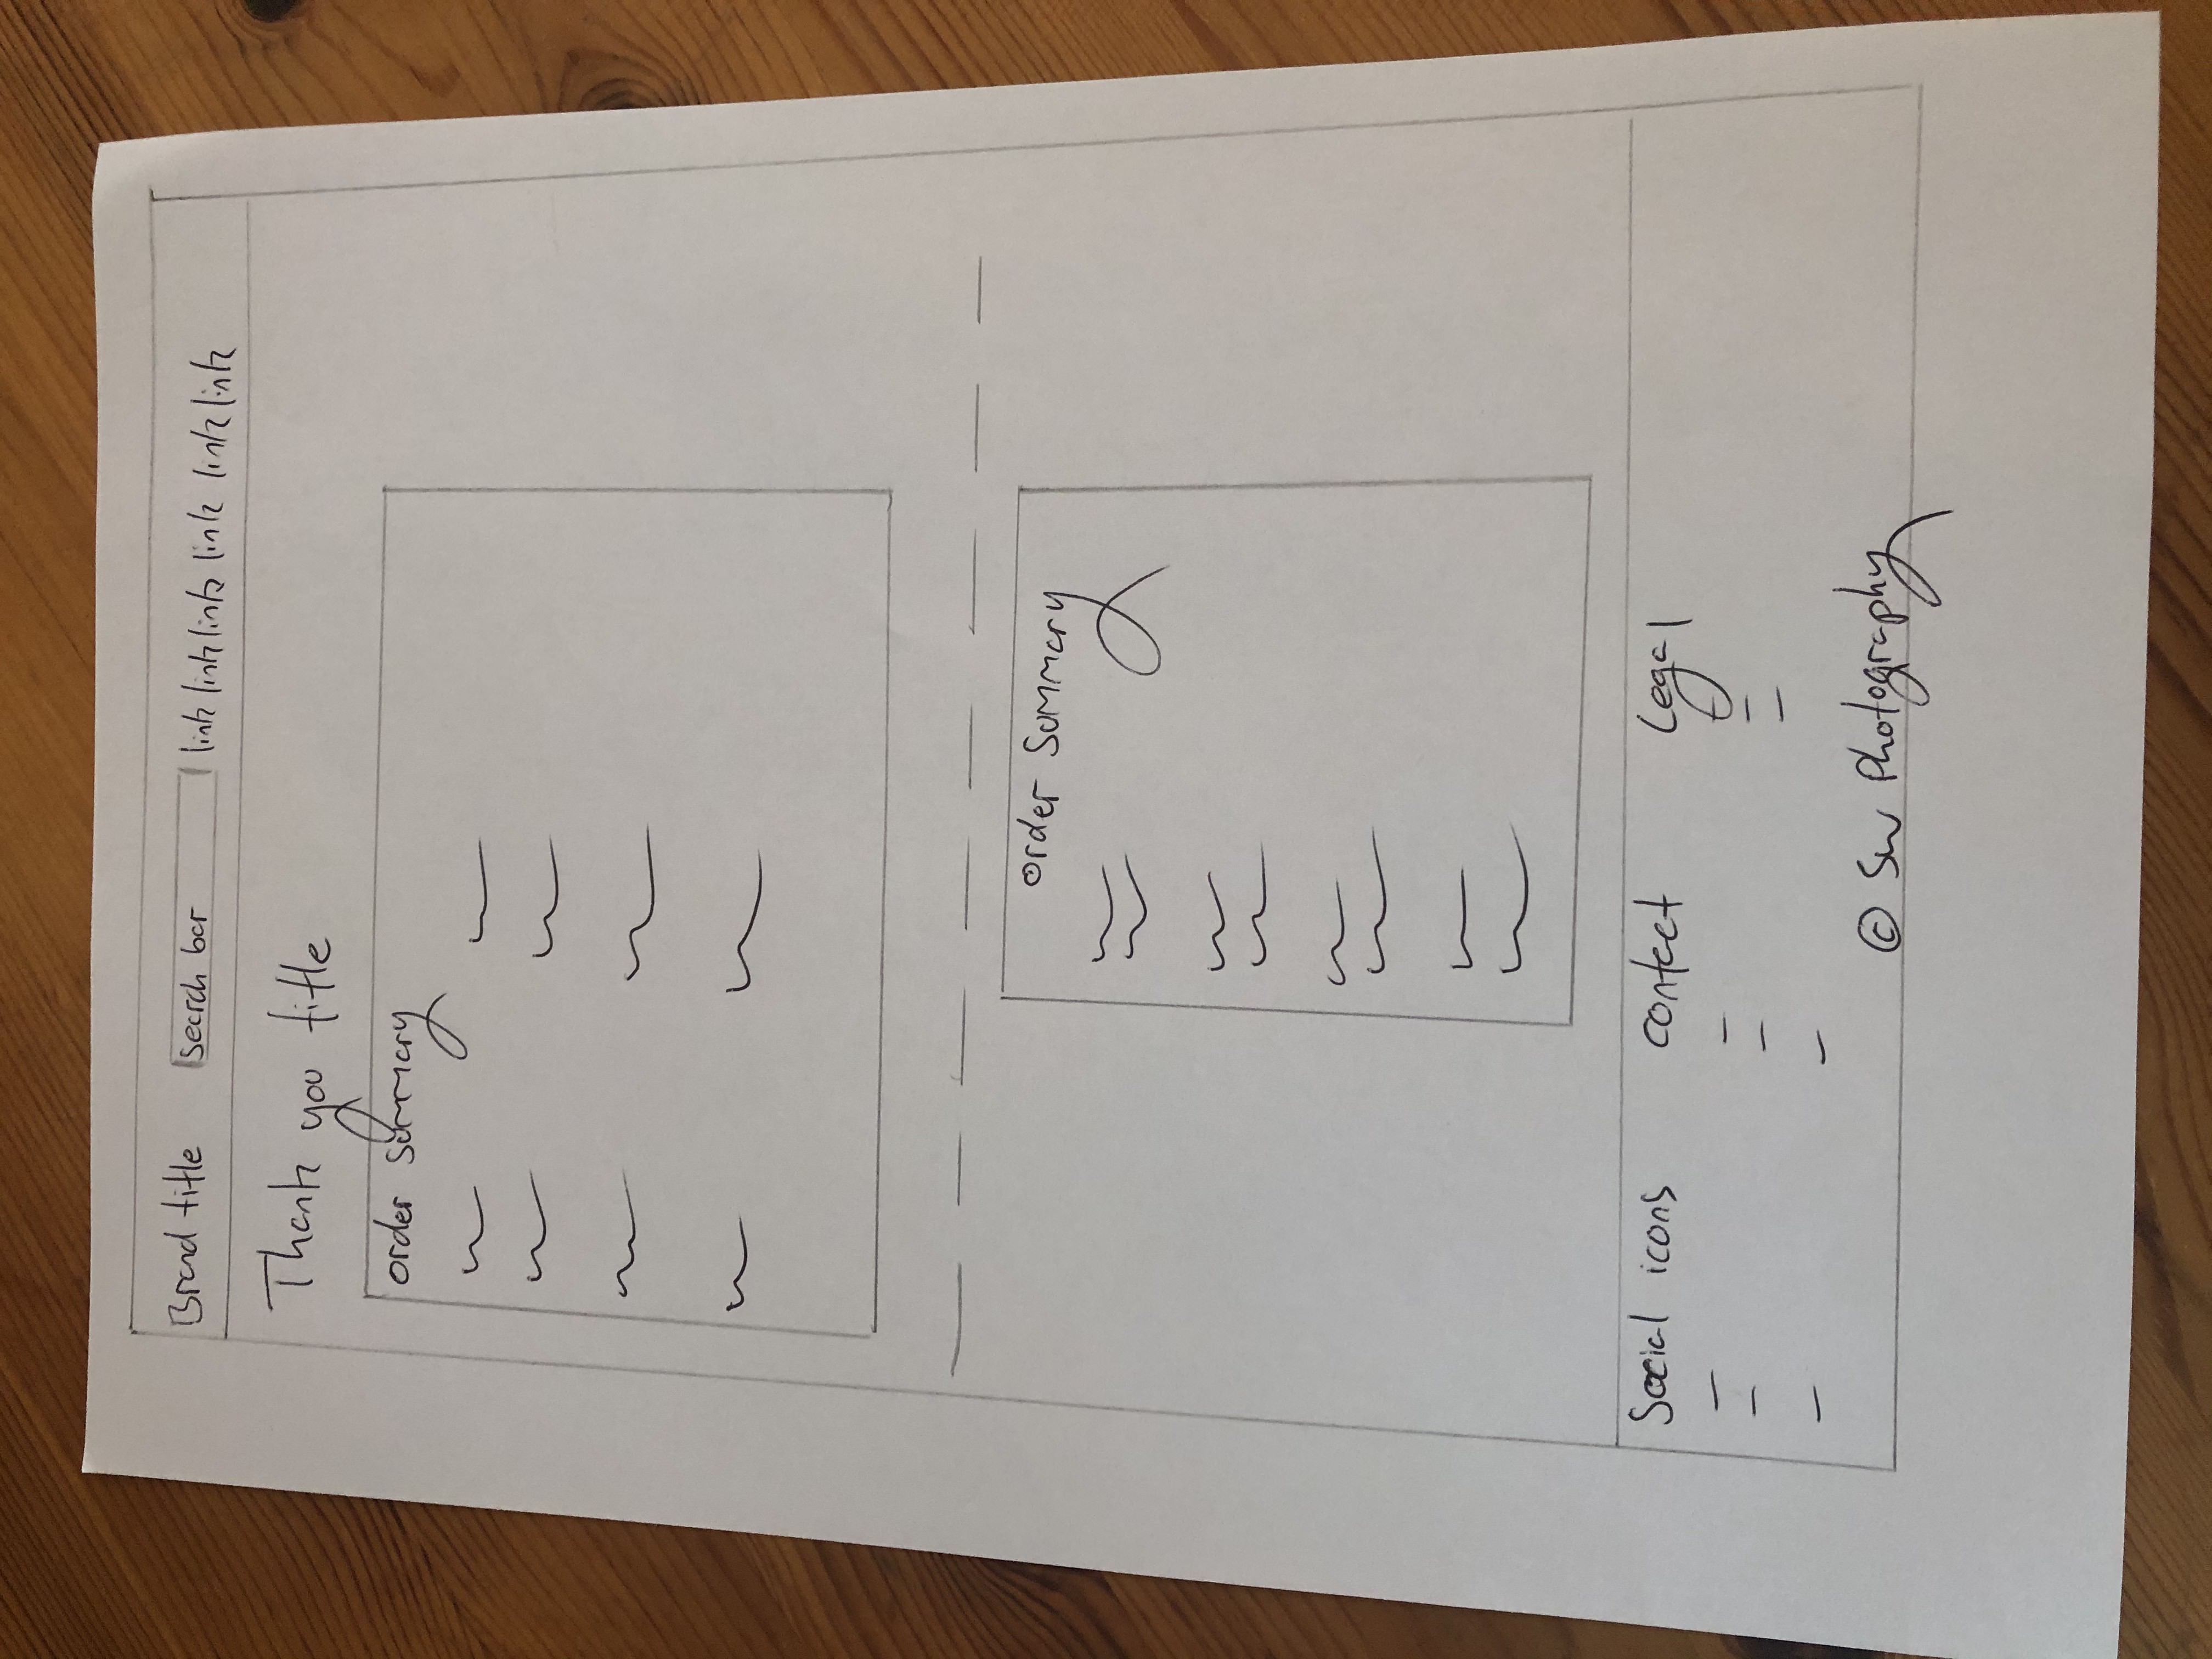 Brand title search bar link link link link link link
Thank you title
order summary
order summary
Social icons contact Legal
© SW Photography